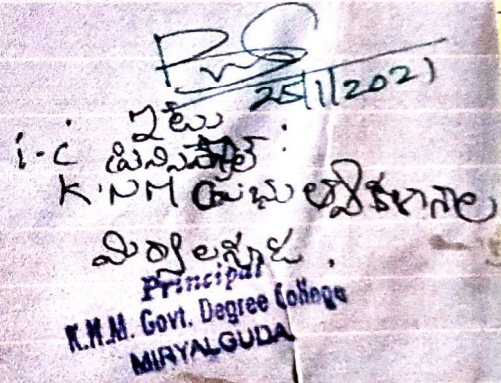 25/1/2021
ఇట్లు
i-c ప్రిన్సిపాల్
K.NM ప్రభు డిగ్రీ కళాశాల
మిర్యాలగూడ.
Principal
K.N.M. Govt. Degree College
MIRYALGUDA